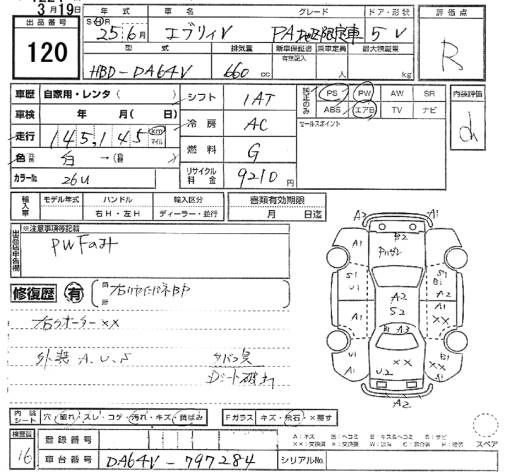 3月19日
出品番号 120
年式 車名 グレード ドア・形状 評価点
S・H 25年6月 エブリィV PA 限定車 5 V R
型式 排気量 新車保証書 乗車定員 最大積載量
有無記入
HBD-DA64V 660 cc 人 kg
車歴 自家用・レンタ( ) シフト 1AT PS PW AW SR 内装評価
車検 年 月( 日) 冷房 AC ABS エアB TV ナビ d
セールスポイント
走行 145,145 km マイル
燃料 G
色 白 →( )
リサイクル料金 9210円
カラーNo 26U
輸入車 モデル年式 ハンドル 輸入区分 書類有効期限
右H・左H ディーラー・並行 月 日迄
出品店申告欄 ※注意事項等記載
PWFのみ
修復歴 有
右クォーター××
外装 A.U.S タバコ臭
Dシート破れ
内装 シート 穴・破れ・スレ・コゲ・汚れ・キズ・錆ばみ Fガラス キズ・飛石・×要す
検査員 16
登録番号
車台番号 DA64V-797284 シリアルNo.
スペア
A2
A1 B2 A1
S1 S1
B1
U1 A2 A1
S2
A1 B A3 ××
U1 ×× A1
A1 U2
A2